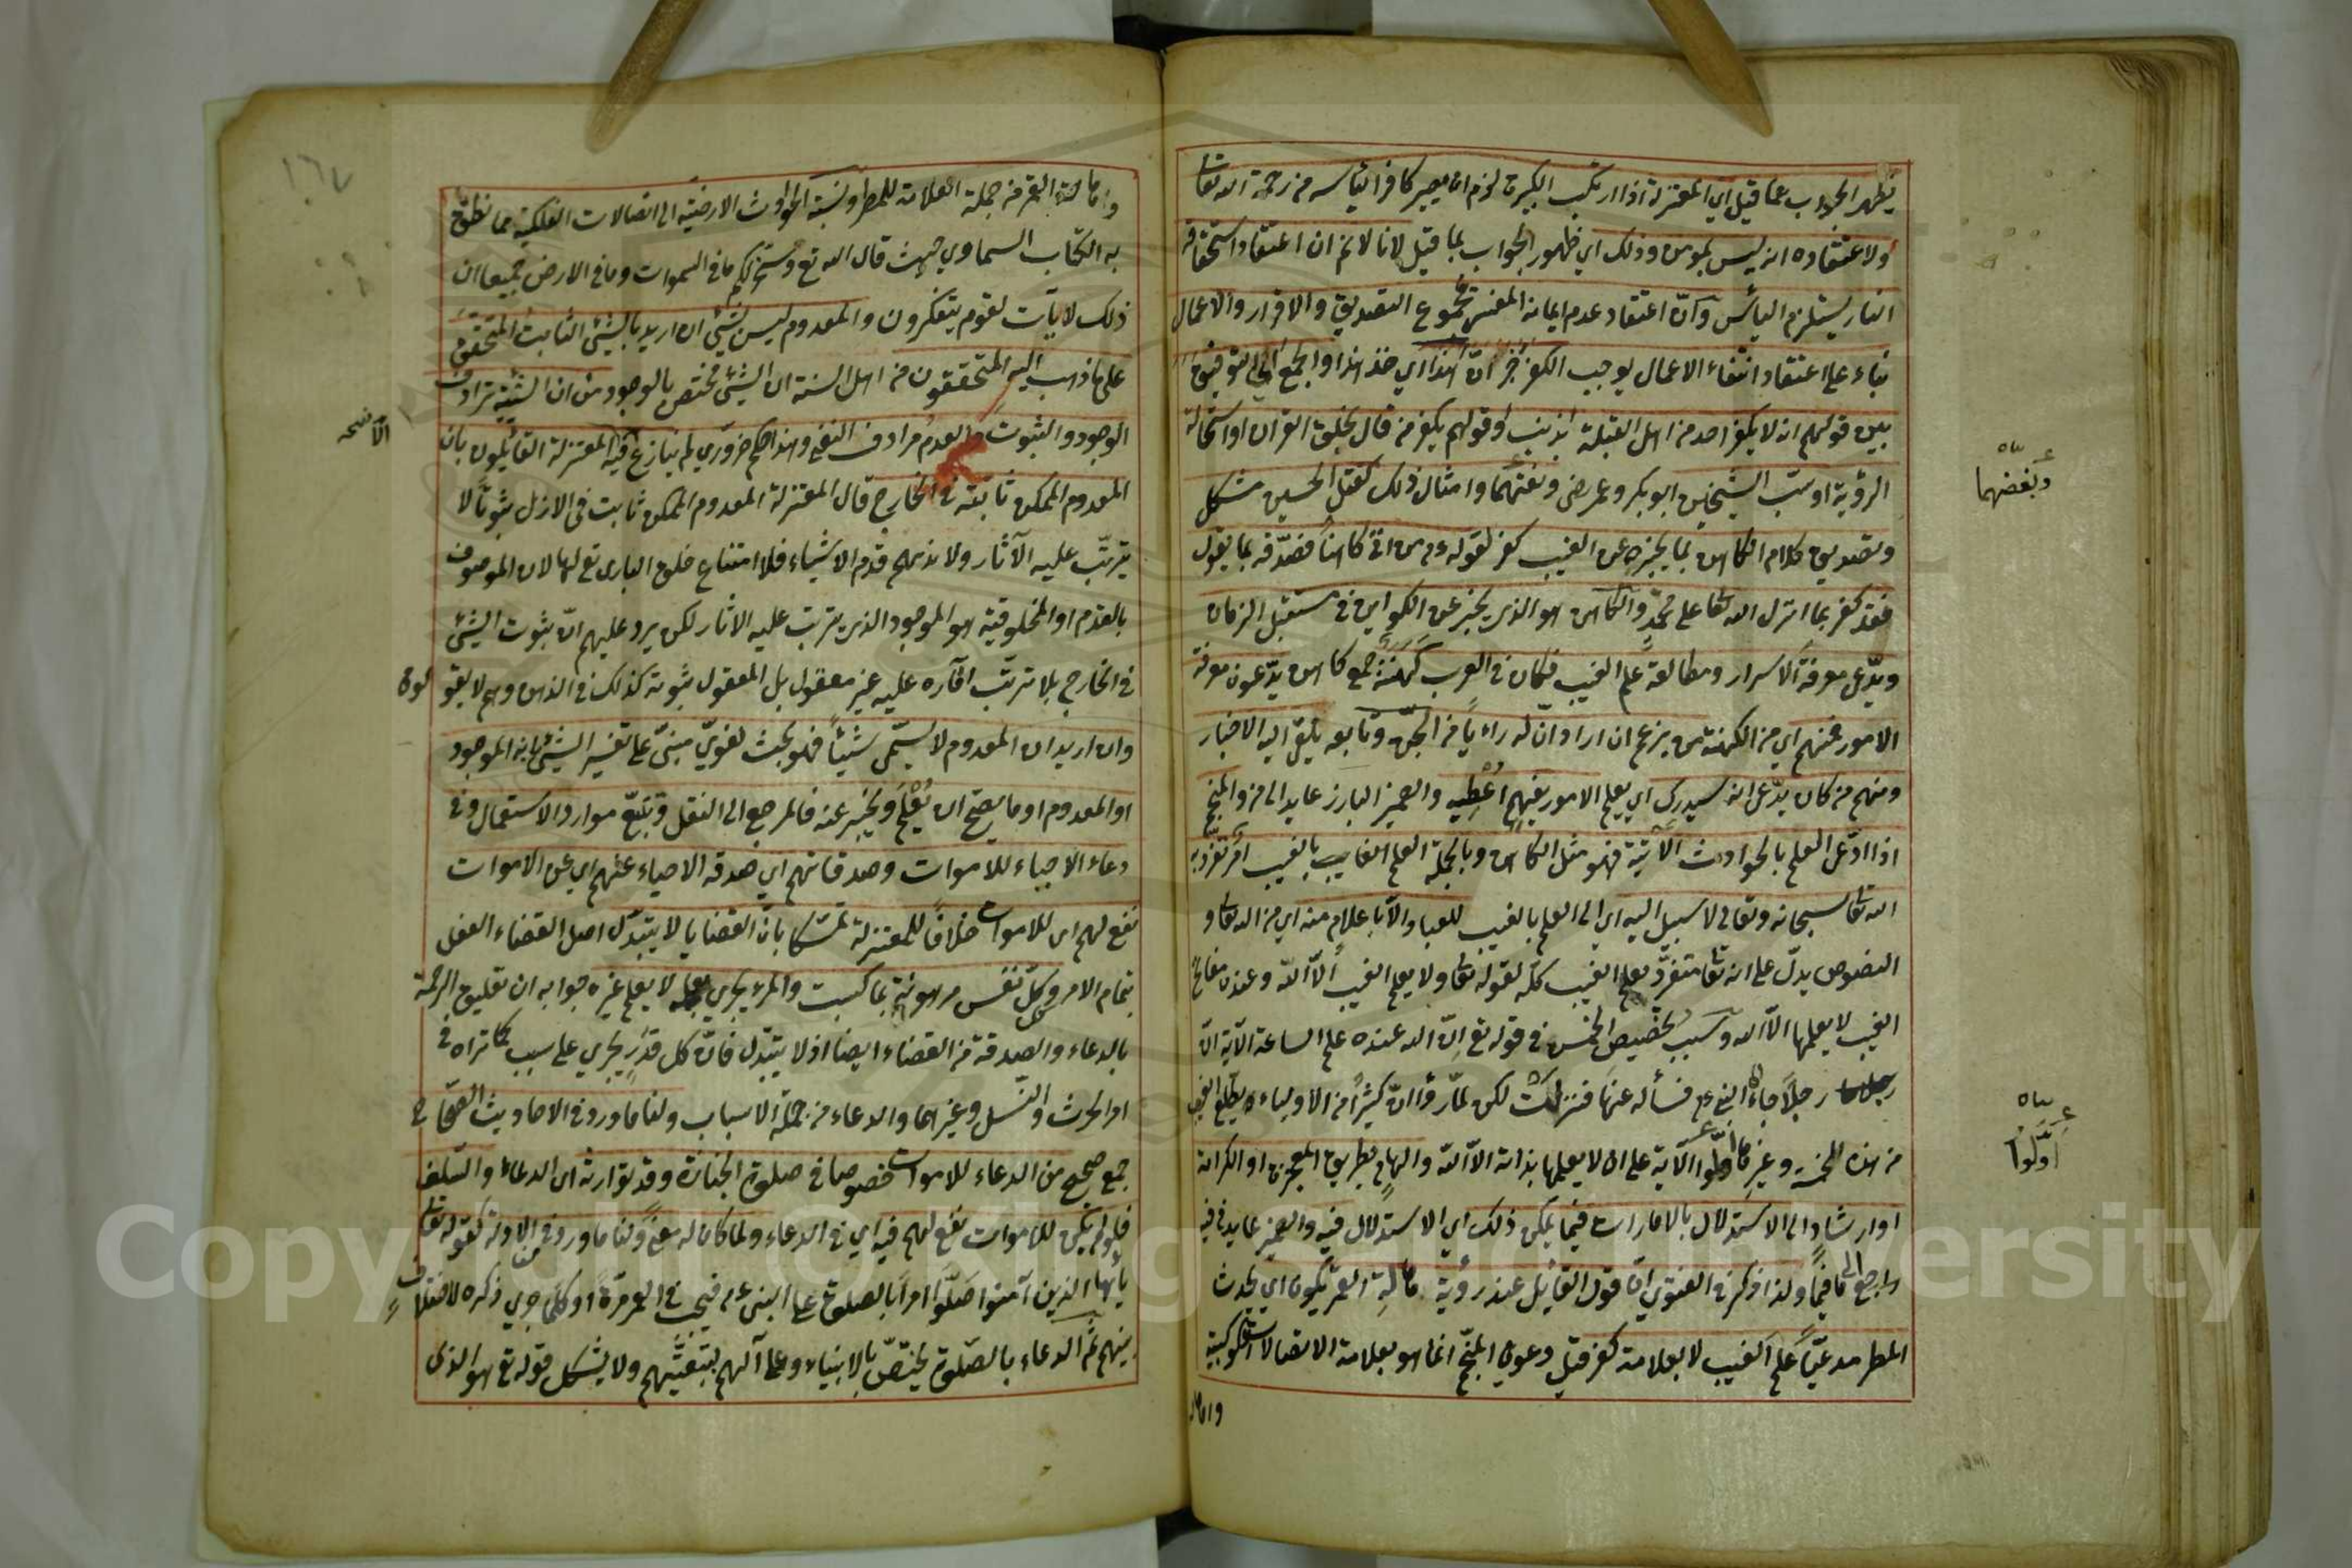 يظهر الجواب عما قيل اي المعتزلة اذا ارتكب الكبيرة لزم ان يصير كافرا ليأسه من رحمة الله تعا
ولاعتقاده انه ليس بمومن وذلك اي ظهور الجواب بما قيل لانا لا نم ان اعتقاد استحقاقه
النار يستلزم اليأس وانّ اعتقاد عدم ايمانه المفسر بمجموع التصديق والاقرار والاعمال
بناء على اعتقاد انتفاء الاعمال يوجب الكفر هذا اي خذ هذا والجمع اي التوفيق
بين قولهم انه لا يكفر احد من اهل القبلة بذنب وقولهم يكفر من قال بخلق القران او استحالة
الرؤية او سبّ الشيخين ابو بكر وعمر رضى ولعنهما وامثال ذلك كقتل الحسين مشكل
وتصديق كلام الكاهن بما يخبره عن الغيب كفر لقوله عم من اتى كاهناً فصدّقه بما يقول
فقد كفر بما انزل الله تعا على محمّد والكاهن هو الذي يخبر عن الكواين في مستقبل الزمان
ويدّعى معرفة الاسرار ومطالعة علم الغيب فكان في العرب كَهَنَةٌ جمع كاهن يدّعون معرفة
الامور فمنهم اي من الكهنة من يزعم ان اراد انّ له رائيا من الجنّ وتابعه يلقى اليه الاخبار
ومنهم من كان يدّعى انه سيدرك اي يعلم الامور بفهم اُعْطِيه والضمير البارز عايد الى من والمنجّم
اذا ادّعى العلم بالحوادث الآتية فهو مثل الكاهن وبالجملة العلم الغايب بالغيب امر تفرّد به
الله تعا سبحانه وتعالى لا سبيل اليه اي الى العلم بالغيب للعباد الّا باعلام منه اي من الله تعا و
النصوص يدلّ على انه تعا متفرّد بعلم الغيب كلّه لقوله تعا ولا يعلم الغيب الّا الله وعنده مفاتح
الغيب لا يعلمها الّا الله وسبب تخصيص الخمس في قوله تع انّ الله عنده علم الساعة الآية انّ
رجلاً جاء الى النبي عم فسأله عنها فنزلت لكن لمّا رؤا انّ كثيرًا من الاولياء يطّلع الغيب
من هذه الخمسة وغيرها اوّلوا الآية على ان لا يعلمها بذاته الّا الله والهام بطريق المعجزة او الكرامة
او ارشاد الى الاستدلال بالامارات فيما يمكن ذلك اي الاستدلال فيه والضمير عايد في فيه
راجع الى ما فيما ولذا ذكر في الفتوى انّ قول القايل عند رؤية هالة القمر يكون اي يحدث
المطر مدعيّاً علم الغيب لا بعلامة كفر قيل دعوى المنجّم انما هو بعلامة الاتصالات الكوكبية
وهالة
وبغضهما
اوّلوا
وهالة القمر من جملة العلامة للمطر ونسبة الحوادث الارضية الى اتصالات الفلكية مما نطق
به الكتاب السماوي حيث قال الله تع وسخر لكم ما في السموات وما في الارض جميعا ان
ذلك لايآت لقوم يتفكرون والمعدوم ليس بشئ ان اريد بالشئ الثابت المتحقق
على ما ذهب اليه المتحققون من اهل السنة ان الشئ مختص بالوجود من ان الشيئية ترادف
الوجود والثبوت والعدم مرادف النفى وهذا حكم ضروري لم ينازع فيه المعتزلة القايلون بان
المعدوم الممكن ثابتة في الخارج قال المعتزلة المعدوم الممكن ثابت في الازل ثبوتًا لا
يترتّب عليه الآثار ولا يلزمهم قدم الاشياء فلا امتناع خلق البارى تع لها لان الموصوف
بالقدم او المخلوقية هو الموجود الذي يترتب عليه الاثار لكن يرد عليهم انّ ثبوت الشئ
في الخارج بلا ترتّب آثاره عليه غير معقول بل المعقول ثبوته كذلك في الذهن وهم لا يقولون
وان اريد ان المعدوم لا يسمّى شيئاً فهو بحث لغويّ مبنىّ على تفسير الشئ بانه الموجود
او المعدوم او ما يصحّ ان يُعْلَم ويخبر عنه فالمرجع الى النقل وتتبّع موارد الاستعمال وفي
دعاء الاحياء للاموات وصدقاتهم اي صدقة الاحياء عنهم اي عن الاموات
نفع لهم اى للاموات خلافًا للمعتزلة تمسّكا بانّ القضايا لا يتبدّل اصل القضاء الفصل
بتمام الامر وكلّ نفس مرهونة بما كسبت والمرء يجزي بعمله لا بعلم غيره جوابه ان تعليق الرحمة
بالدعاء والصدقة من القضاء ايضا اذ لا يتبدّل فانّ كل قدَرٍ يجري على سبب كما تراه في
امر الحرث والنّسل وغيرهما والدعاء من جملة الاسباب ولنا ما ورد في الاحاديث الصّحاح
جمع صحيح من الدعاء للاموات خصوصا في صلوة الجنازة وقد توارثه اى الدعاء والسّلف
فلو لم يكن للاموات نفع لهم فيه اي في الدعاء ولما كان له معنى ولنا ما ورد في الادلة كقوله تعا
يأيّها الذين آمنوا صَلُّوا امراً بالصلوة على النبى عم فيجب في العمر مرّة او كلّما جري ذكره لاختلاف
بينهم ثم الدعاء بالصّلوة يختصّ بالانبياء وعلى آلهم بتبعيّتهم ولا يشكل قوله تع هو الذى
الا نسخه
١٦٧